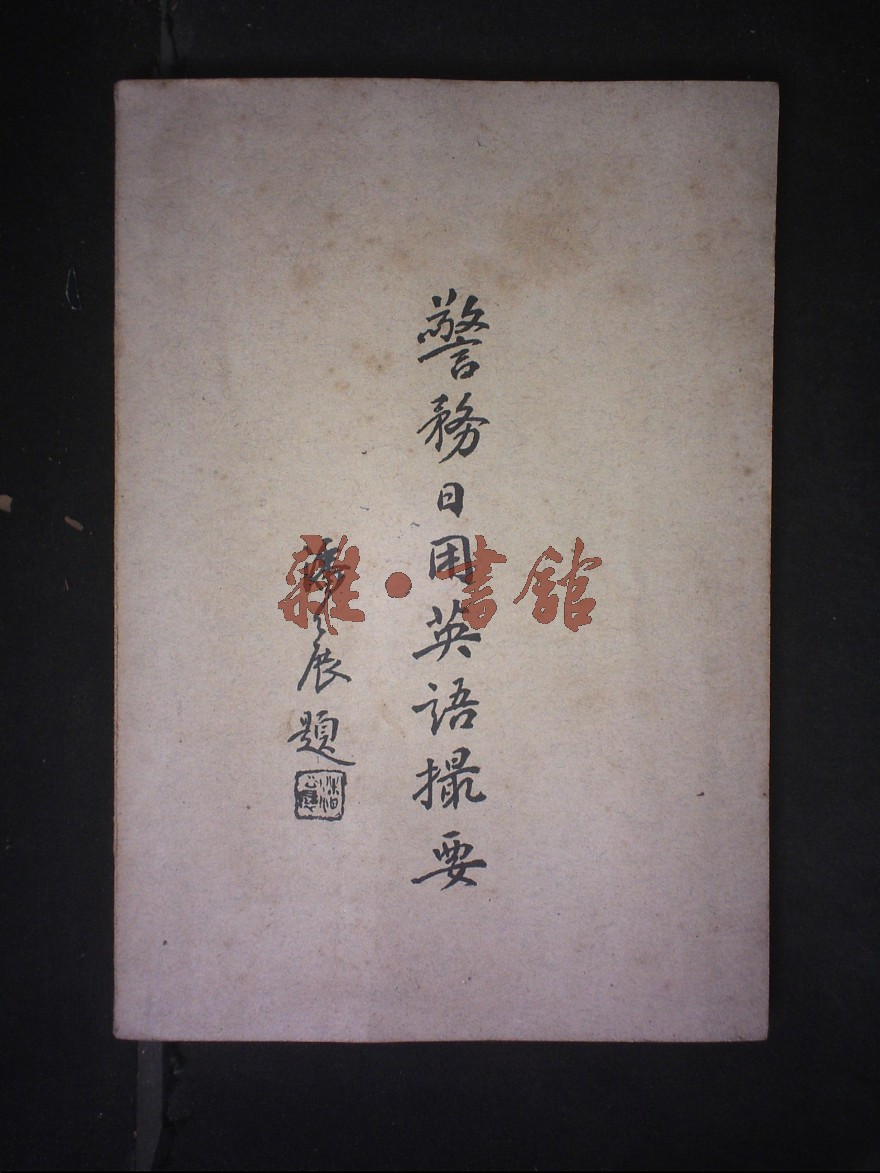 警務日用英語撮要
展題
雜·書館